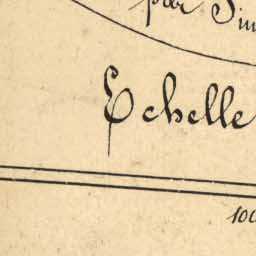 par
Echelle
100